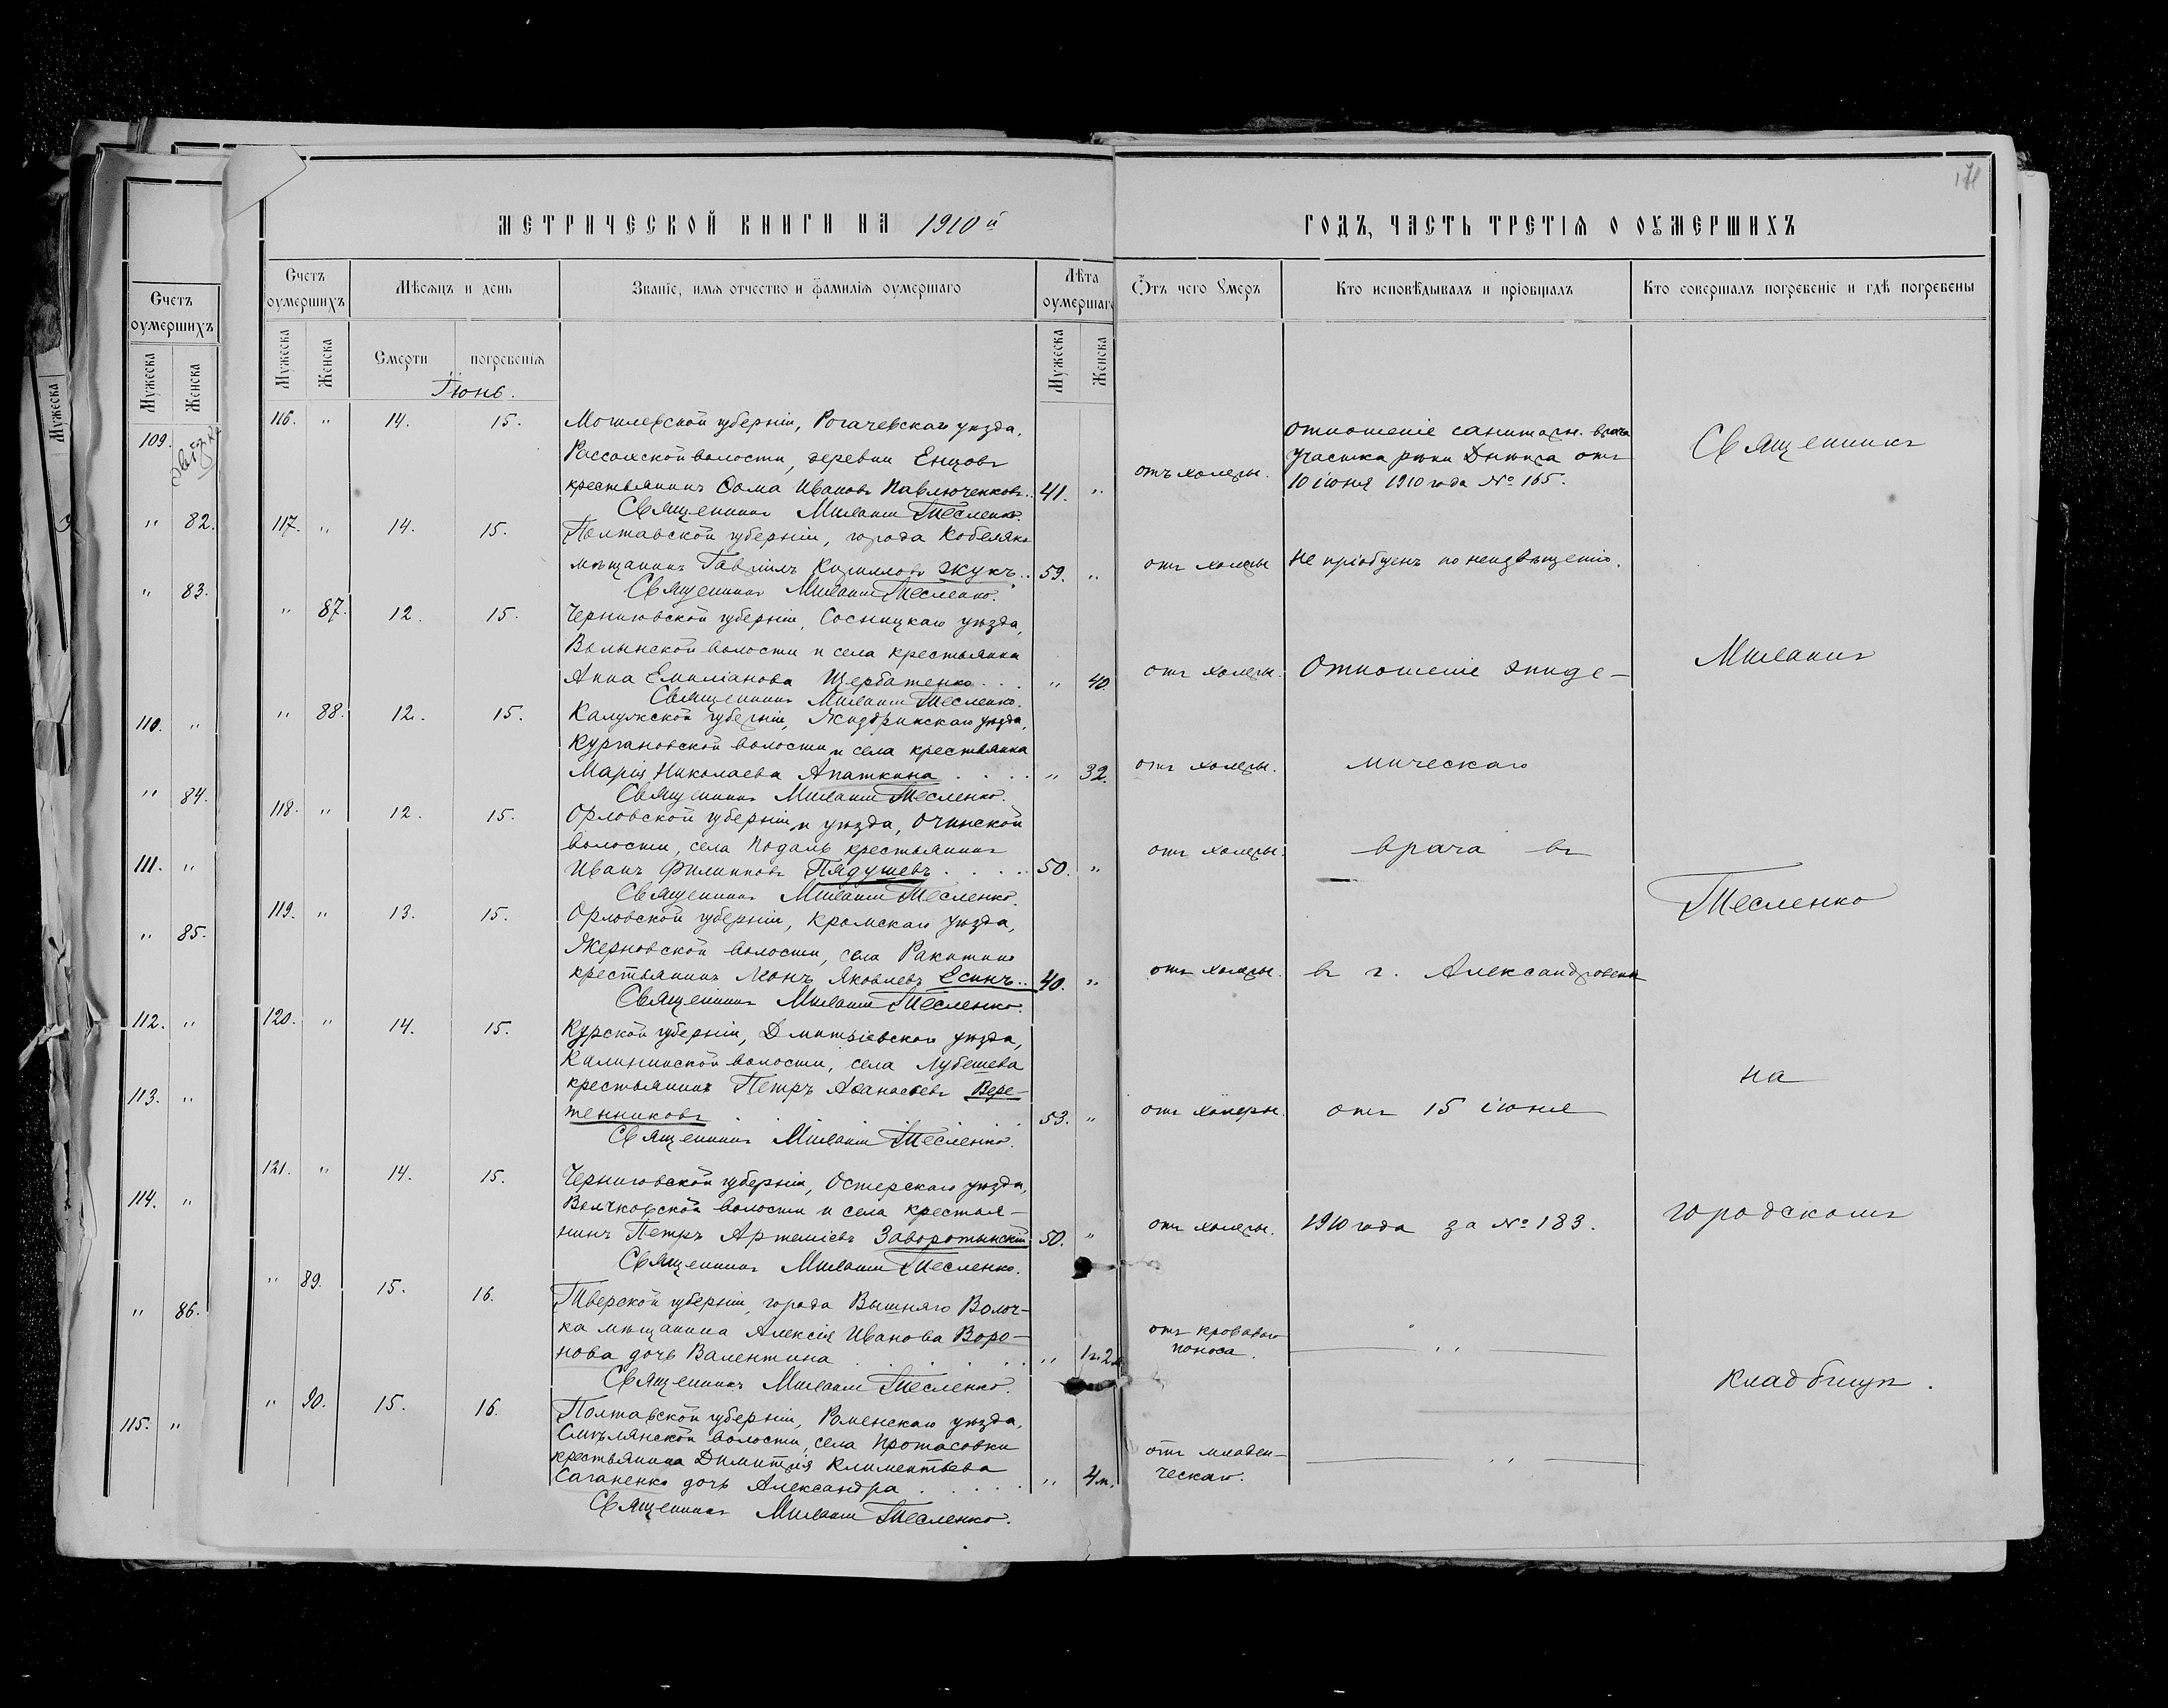 171
МЕТРИЧЕСКОЙ КНИГИ НА 1910й ГОДЪ, ЧАСТЬ ТРЕТІЯ О ОУМЕРШИХЪ
Счетъ оумершихъ
Мужеска
Женска
109.
" 82.
" 83.
110. "
" 84.
111. "
" 85.
112. "
113. "
114. "
" 86.
115. "
Мужеска
Счетъ оумершихъ
Мѣсяцъ и день
Званіе, имя отчество и фамилія оумершаго
Лѣта оумершаго
Ѿтъ чего Умеръ
Кто исповѣдывалъ и пріобщалъ
Кто совершалъ погребеніе и гдѣ погребены
Мужеска
Женска
Смерти
погребенія
Мужеска
Женска
Іюнь.
116. " 14. 15.
Могилевской губерніи, Рогачевскаго уѣзда,
волости, деревни Енцовъ
крестьянинъ Ѳома Ивановъ Павлюченковъ.. 41. "
отъ холеры.
отношеніе санитарн. врача
участка рѣки Днѣпра отъ
10 іюня 1910 года № 165.
Священникъ Тесленко.
117. " 14. 15.
Полтавской губерніи, города Кобелякъ
мѣщанинъ Гавріилъ Кирилловъ Жукъ.. 59. "
отъ холеры
Не пріобщенъ по неизвѣщенію.
Священникъ Тесленко.
" 87. 12. 15.
Черниговской губерніи, Сосницкаго уѣзда,
Волынской волости и села крестьянка
Анна Емиліанова Щербатенко... " 40.
отъ холеры.
Священникъ Тесленко.
" 88. 12. 15.
Калужской губерніи, Жиздринскаго уѣзда,
Кургановской волости и села крестьянка
Марія Николаева Апаткина.... " 32.
отъ холеры.
Священникъ Тесленко.
118. " 12. 15.
Орловской губерніи и уѣзда,
волости, села крестьянинъ
Иванъ Филипповъ Пядушевъ.... 50. "
отъ холеры.
Священникъ Тесленко.
119. " 13. 15.
Орловской губерніи, Кромскаго уѣзда,
Жерновской волости, села Ракитино
крестьянинъ Леонъ Яковлевъ Есинъ.. 40. "
отъ холеры.
Священникъ Тесленко.
120. " 14. 15.
Курской губерніи, Дмитріевскаго уѣзда,
волости, села
крестьянинъ Петръ Аѳанасьевъ Вере-
тенниковъ 53. "
отъ холеры.
Священникъ Тесленко.
121. " 14. 15.
Черниговской губерніи, Остерскаго уѣзда,
волости и села крестья-
нинъ Петръ Артеміевъ Заворотынскій 50. "
отъ холеры.
Священникъ Тесленко.
" 89. 15. 16.
Тверской губерніи, города Вышняго Волоч-
ка мѣщанина Алексія Иванова Воро-
нова дочь Валентина " 1 г. 2 м.
отъ кроваваго
поноса.
"
Священникъ Тесленко.
" 90. 15. 16.
Полтавской губерніи, Роменскаго уѣзда,
Смѣлянской волости, села Протасовки
крестьянина Димитрія Климентьева
Саганенко дочь Александра " 4 м.
отъ младен-
ческаго.
"
Священникъ Тесленко.
Отношеніе эпиде-
мическаго
врача въ
въ г. Александровскѣ
отъ 15 іюня
1910 года за № 183.
Священникъ
Тесленко
на
городскомъ
кладбищѣ.